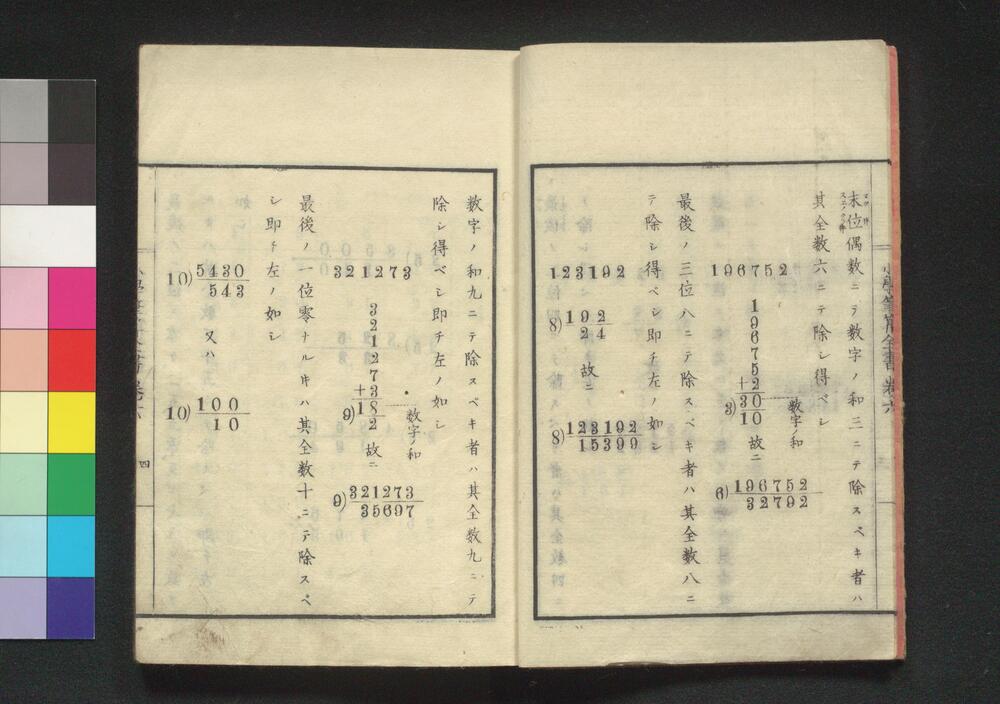 末位偶數ニテ數字ノ和三ニテ除スベキ者ハ
其全數六ニテ除シ得ベシ
196752
1
9
6
7
5
+2
3)30 數字ノ和
10
故ニ
6)196752
32792
最後ノ三位八ニテ除スベキ者ハ其全數八ニ
テ除シ得ベシ即チ左ノ如シ
123192
8)192
24
故ニ
8)123192
15399
數字ノ和九ニテ除スベキ者ハ其全數九ニテ
除シ得ベシ即チ左ノ如シ
321273
3
2
1
2
7
+3
9)18 數字ノ和
2
故ニ
9)321273
35697
最後ノ一位零ナルキハ其全數十ニテ除スベ
シ即チ左ノ如シ
10)5430
543
又ハ
10)100
10
四